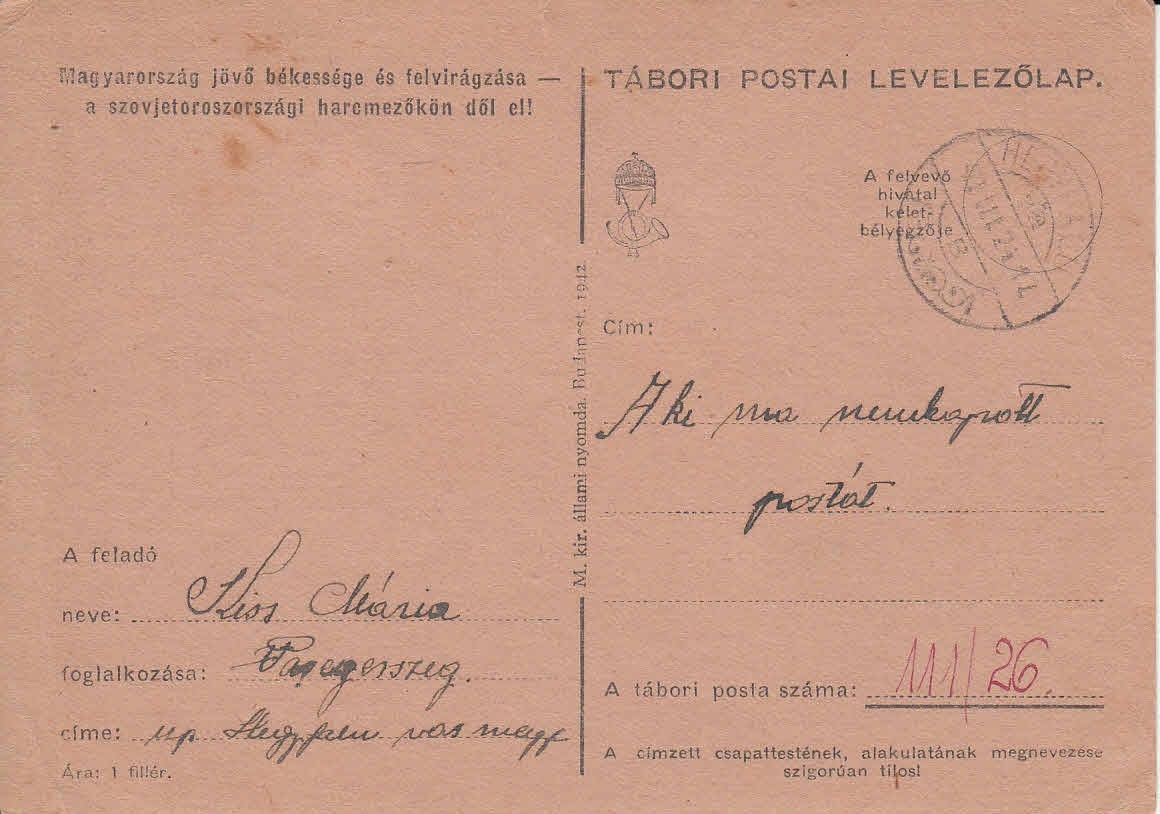 Magyarország jövő békessége és felvirágzása —
a szovjetoroszországi harcmezőkön dől el!
TÁBORI POSTAI LEVELEZŐLAP.
A felvevő
hivatal
kelet-
bélyegzője
M. kir. állami nyomda. Budapest. 1942.
Cím:
Aki ma nemkapott
postát.
A feladó
neve: Kiss Mária
foglalkozása:
címe: up Hegyfalu vas megye
Ára: 1 fillér.
A tábori posta száma: 111/26.
A címzett csapattestének, alakulatának megnevezése
szigorúan tilos!